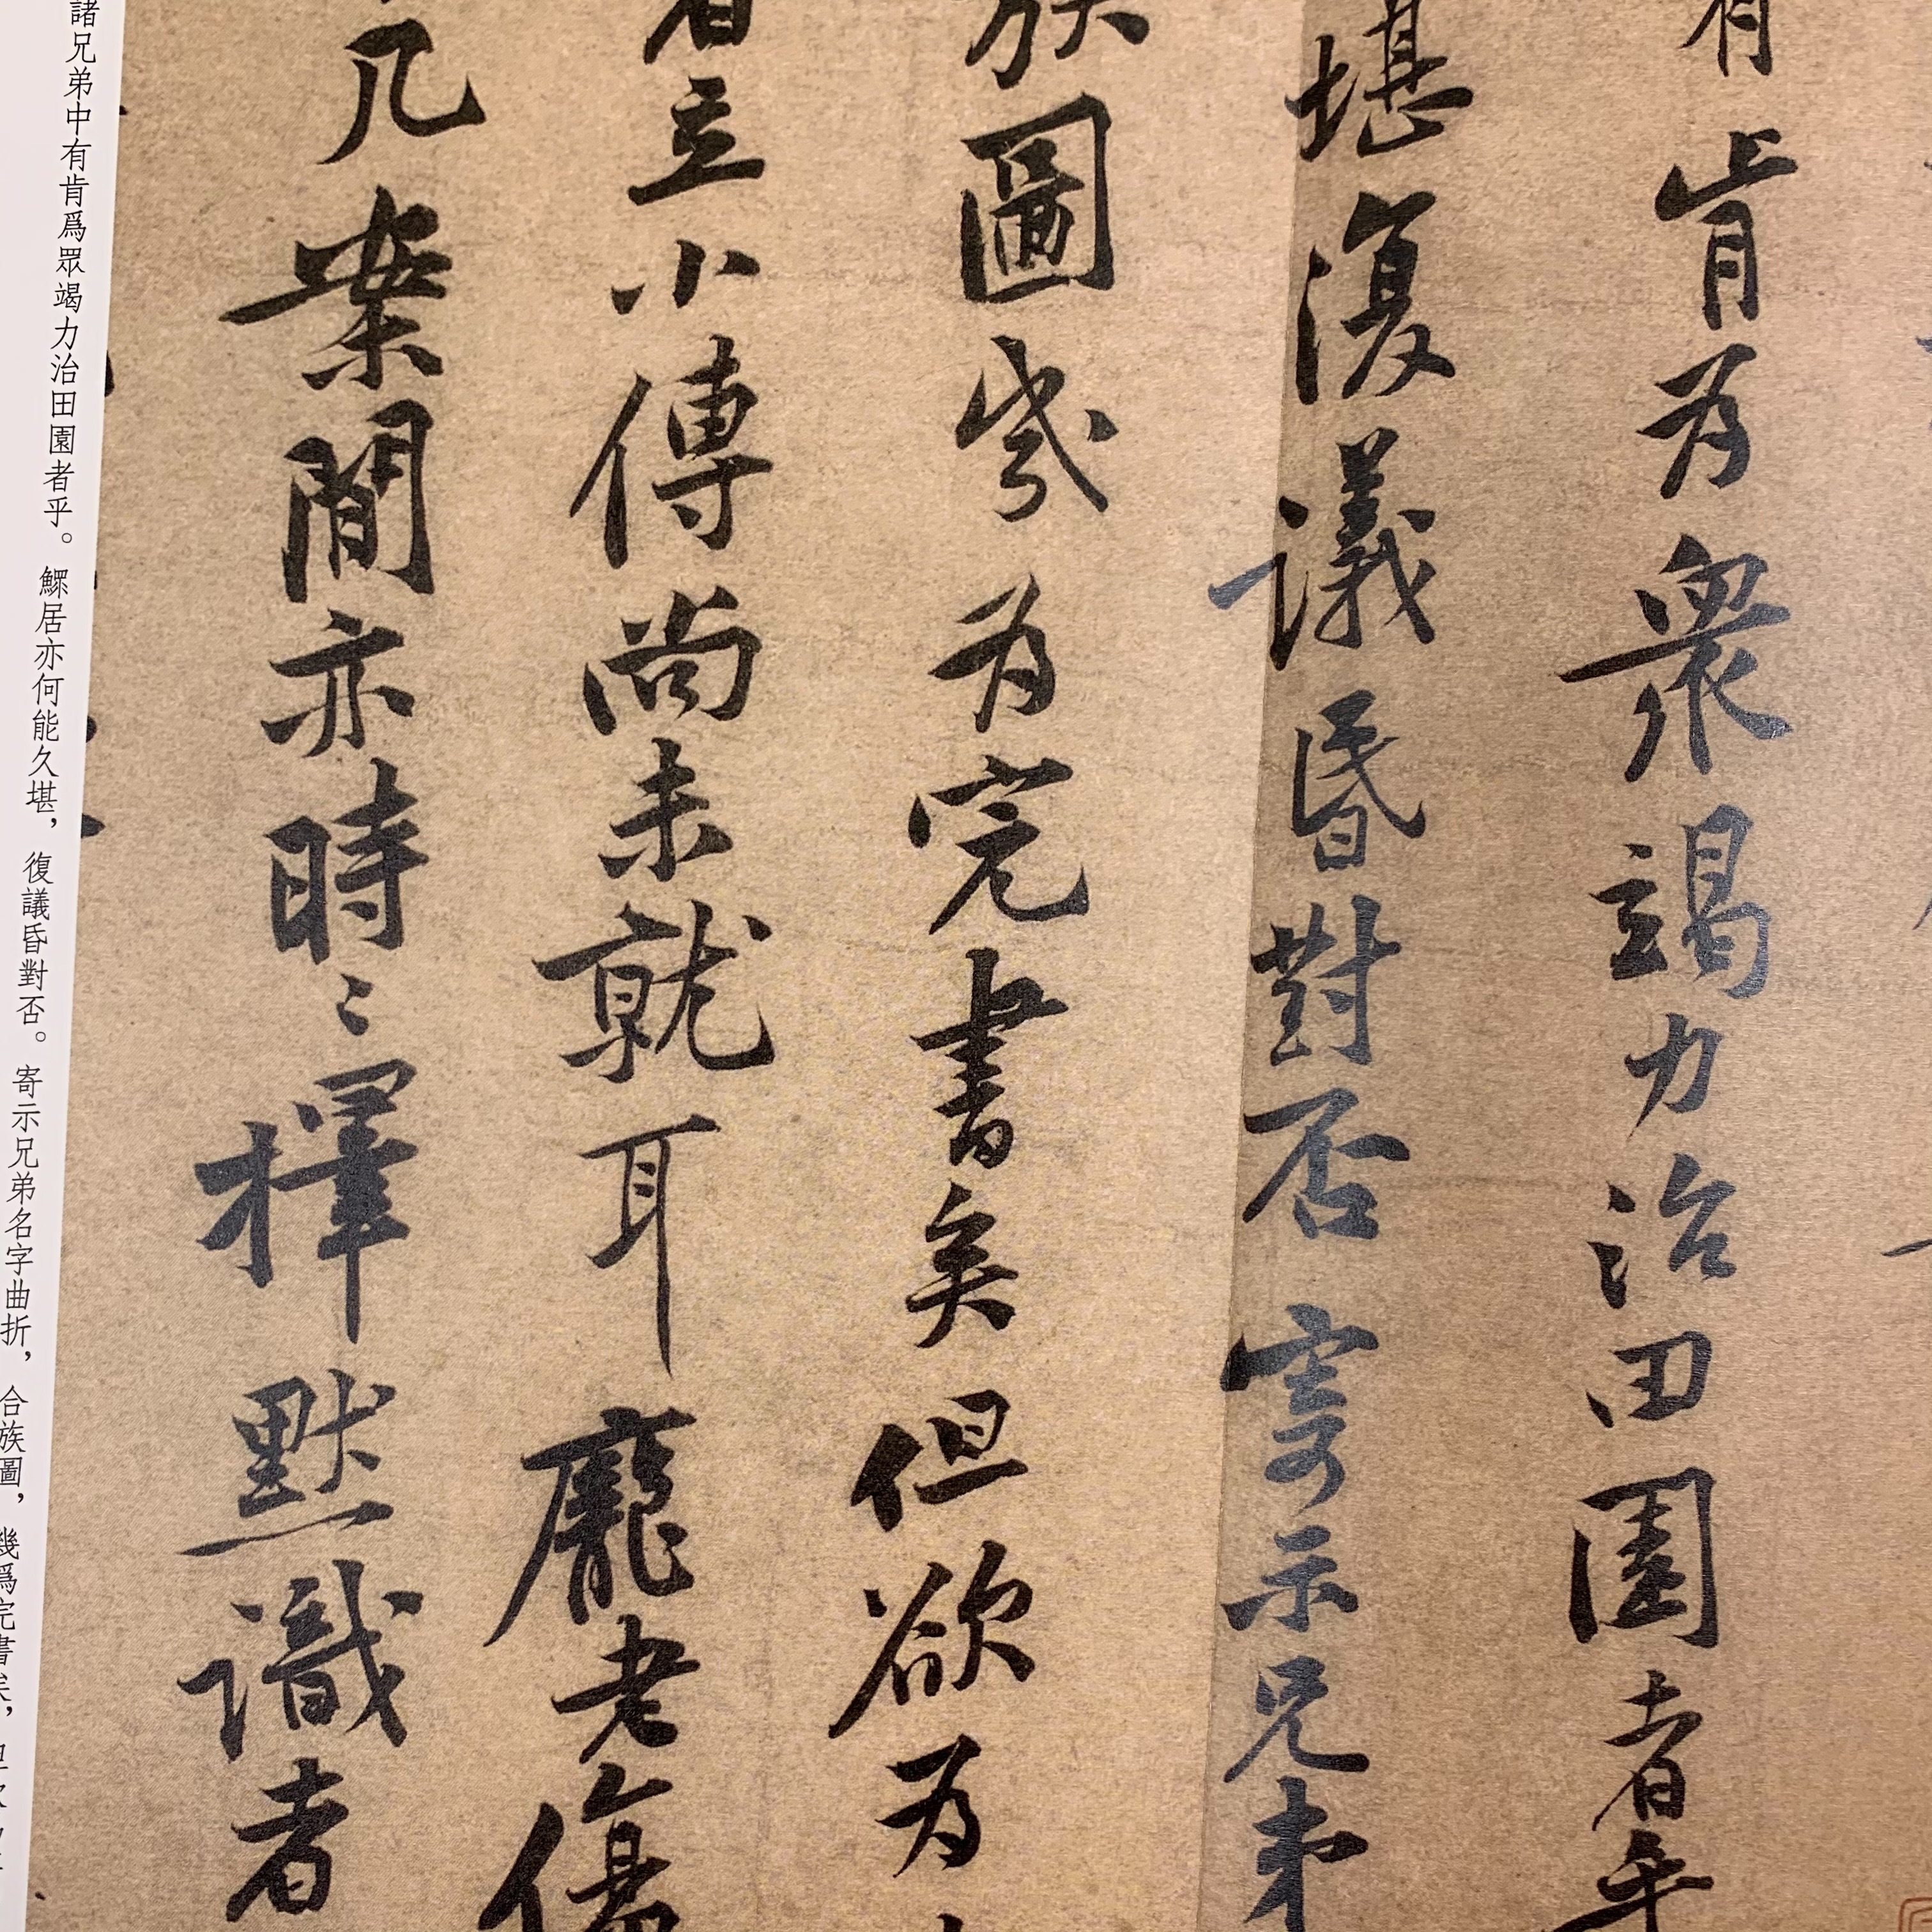 有肯为衆竭力治田園者乎
堪復議昏對否寄示兄弟
族圖幾为完書矣但欲为
者立小傳尚未就耳龐老傷
几案間亦時〻擇默識者
諸兄弟中有肯爲眾竭力治田園者乎。鰥居亦何能久堪，復議昏對否。寄示兄弟名字曲折，合族圖，幾爲完書矣，但欲